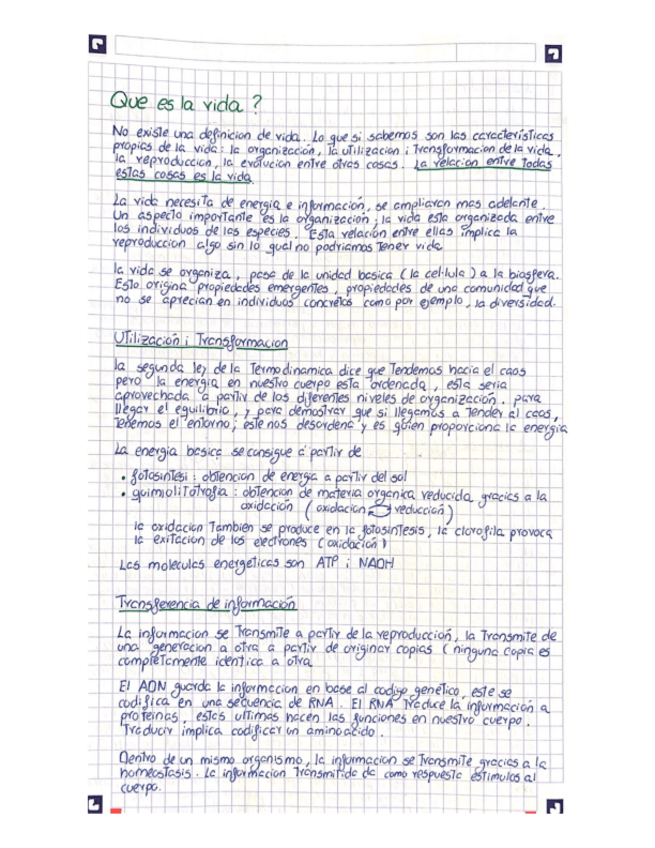 Que es la vida ?
No existe una definicion de vida. Lo que si sabemos son las características
propias de la vida: la organización, la utilización i Transformacion de la vida,
la reproduccion, la evolucion entre otras cosas. La relacion entre todas
estas cosas es la vida.
La vida necesita de energia e información, se ampliaran mas adelante.
Un aspecto importante es la organización; la vida esta organizada entre
los individuos de las especies. Esta relación entre ellas implica la
reproduccion algo sin lo qual no podriamos tener vida
la vida se organiza, pasa de la unidad basica (la cel·lula) a la biosfera.
Esto origina propiedades emergentes, propiedades de una comunidad que
no se aprecian en individuos concretos como por ejemplo, la diversidad.
Utilización i Transformacion
la segunda ley de la Termodinamica dice que Tendemos hacia el caos
pero la energia en nuestro cuerpo esta ordenada, esta seria
aprovechada a partir de los diferentes niveles de organización. para
llegar el equilibrio, y para demostrar que si llegamos a Tender al caos,
tenemos el entorno; este nos desordena y es quien proporciona la energia
La energia basica se consigue a partir de
• fotosintesi : obtencion de energia a partir del sol
• quimiolitotrofia : obtencion de materia organica reducida gracias a la
oxidación ( oxidacion reducción )
la oxidacion Tambien se produce en la fotosintesis, la clorofila provoca
la exitacion de los electrones (oxidación)
Las moleculas energeticas son ATP i NADH
Transferencia de información
La informacion se Transmite a partir de la reproducción, la Transmite de
una generacion a otra a partir de originar copias ( ninguna copia es
completamente identica a otra
El ADN guarda la informacion en base al codigo genético, este se
codifica en una secuencia de RNA. El RNA Traduce la información a
proteinas, estas ultimas hacen las funciones en nuestro cuerpo.
Traducir implica codificar un aminoacido.
Dentro de un mismo organismo, la informacion se Transmite gracias a la
homeostasis. La informacion Transmitida da como respuesta estimulos al
cuerpo.